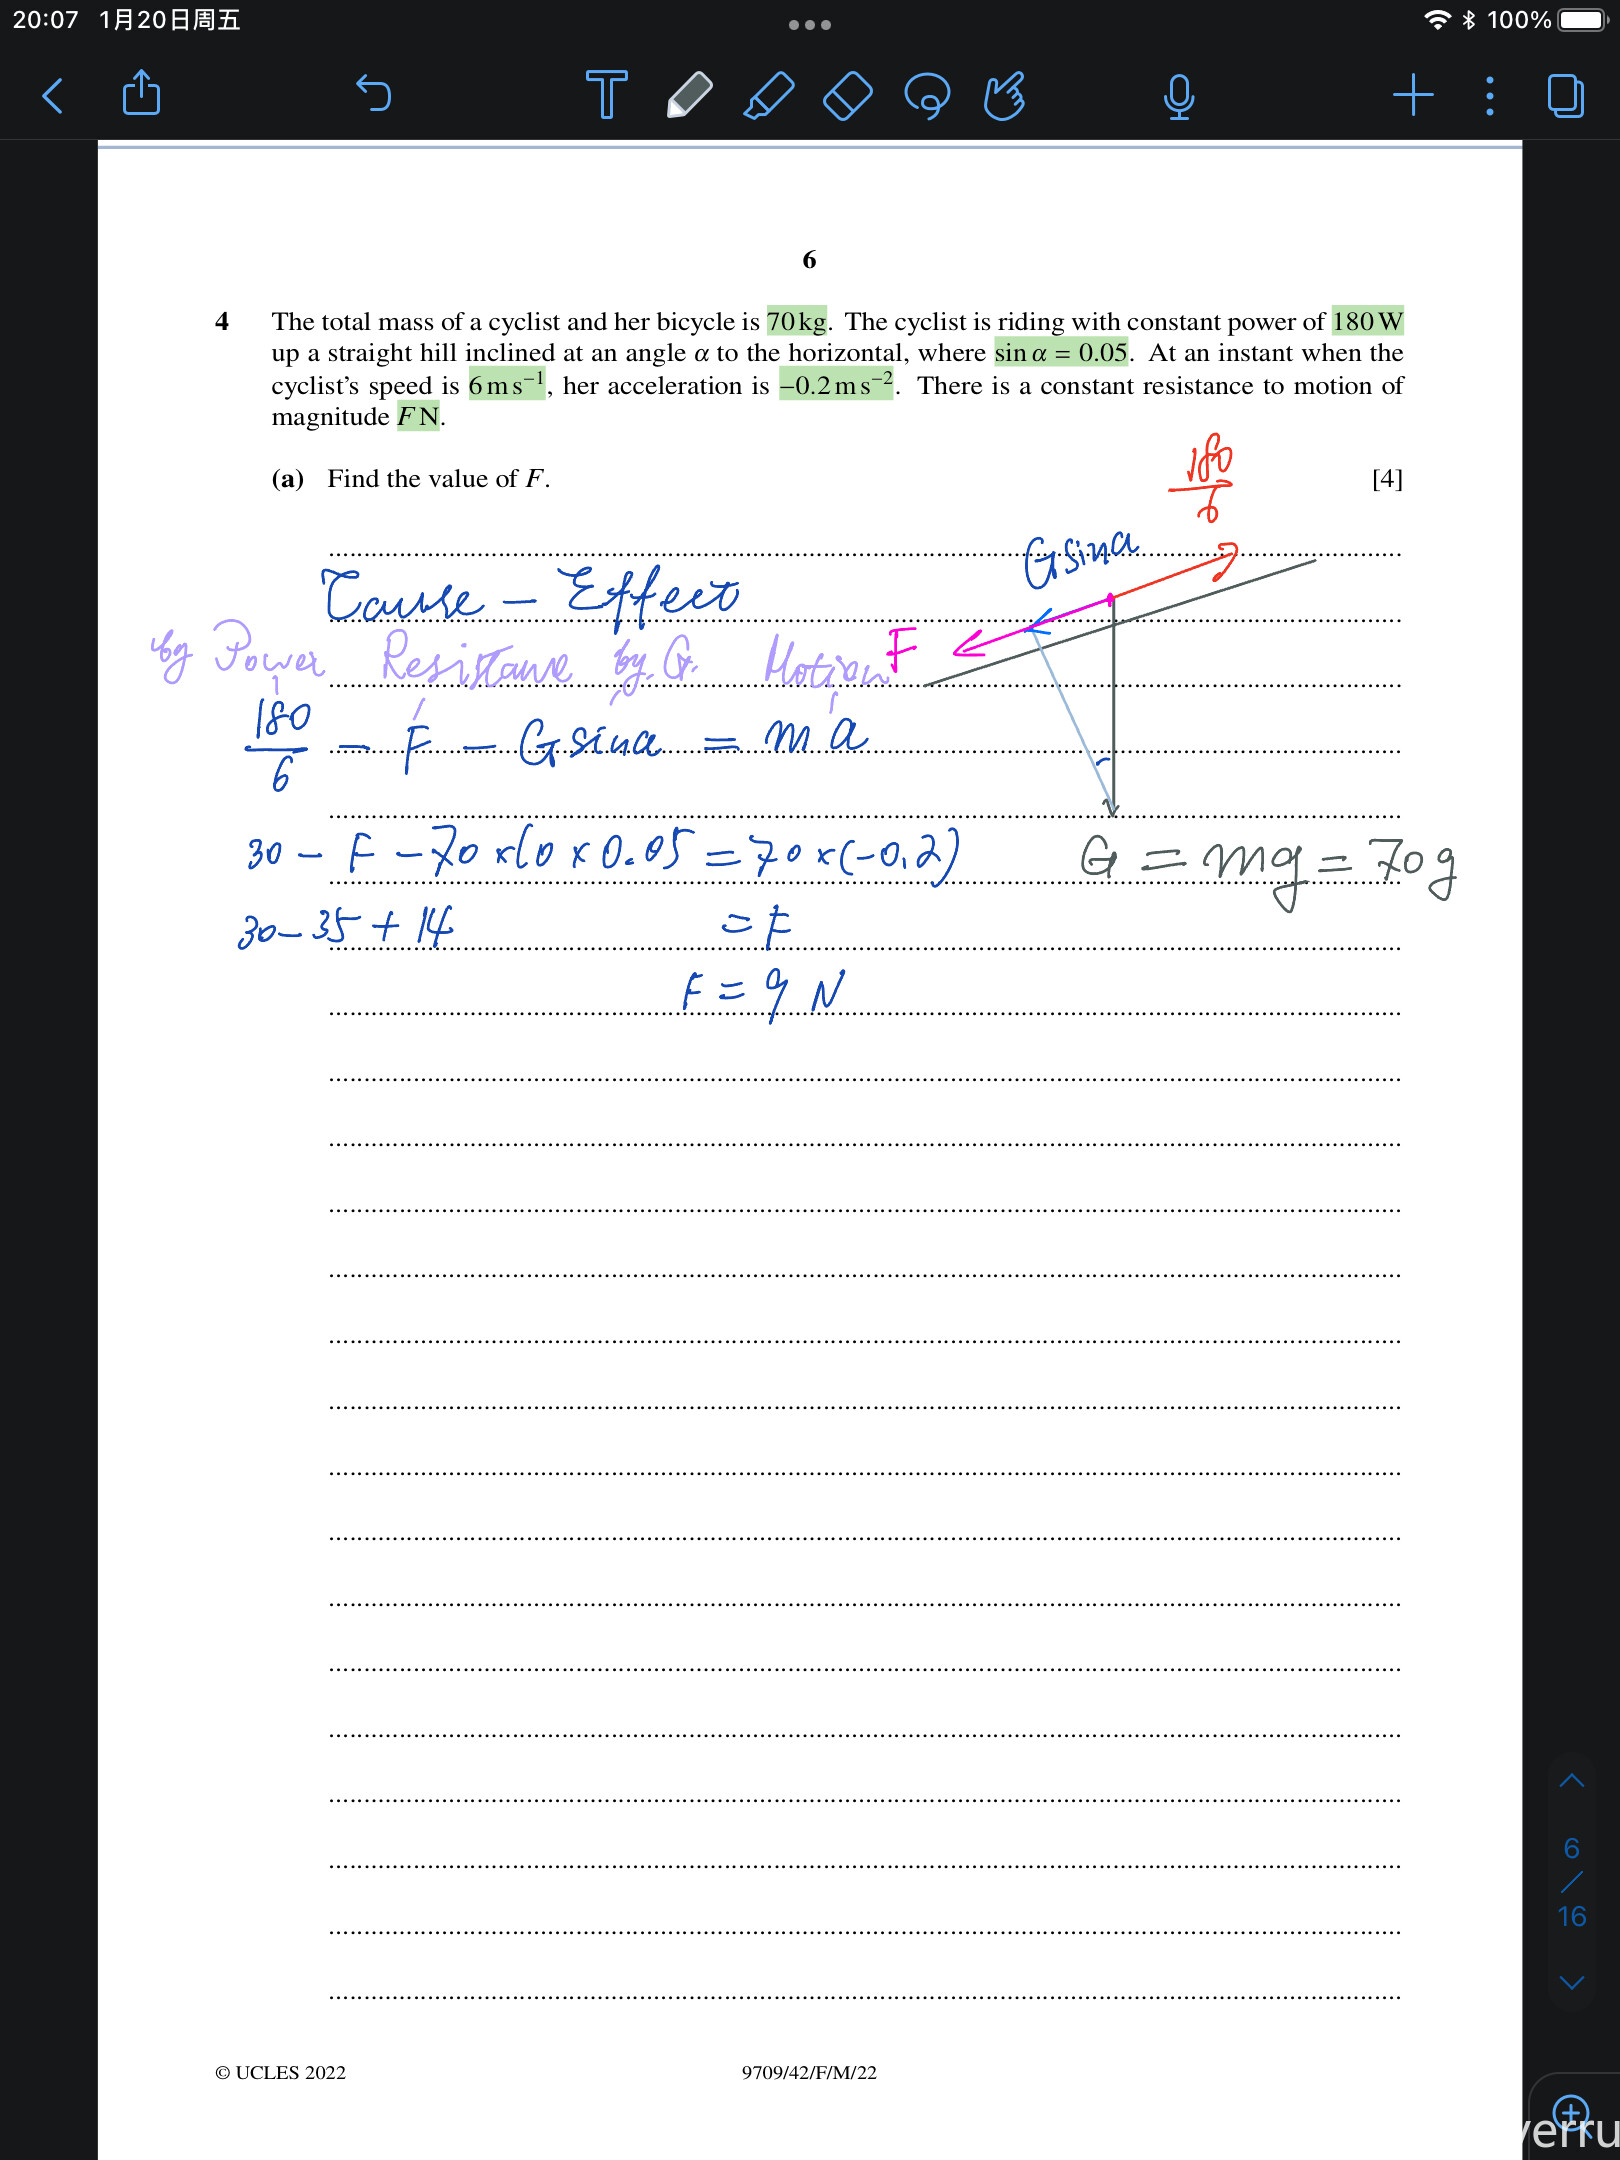 20:07 1月20日周五 100%
6
4 The total mass of a cyclist and her bicycle is 70 kg. The cyclist is riding with constant power of 180 W
up a straight hill inclined at an angle α to the horizontal, where sin α = 0.05. At an instant when the
cyclist's speed is 6 m s⁻¹, her acceleration is −0.2 m s⁻². There is a constant resistance to motion of
magnitude F N.
(a) Find the value of F. [4]
180/6
G sin α
Cause – Effect
by Power Resistance by G. Motion F
180/6 – F – G sin α = m a
30 – F – 70 × 10 × 0.05 = 70 × (-0.2) G = mg = 70g
30 – 35 + 14 = F
F = 9 N
6
/
16
© UCLES 2022 9709/42/F/M/22